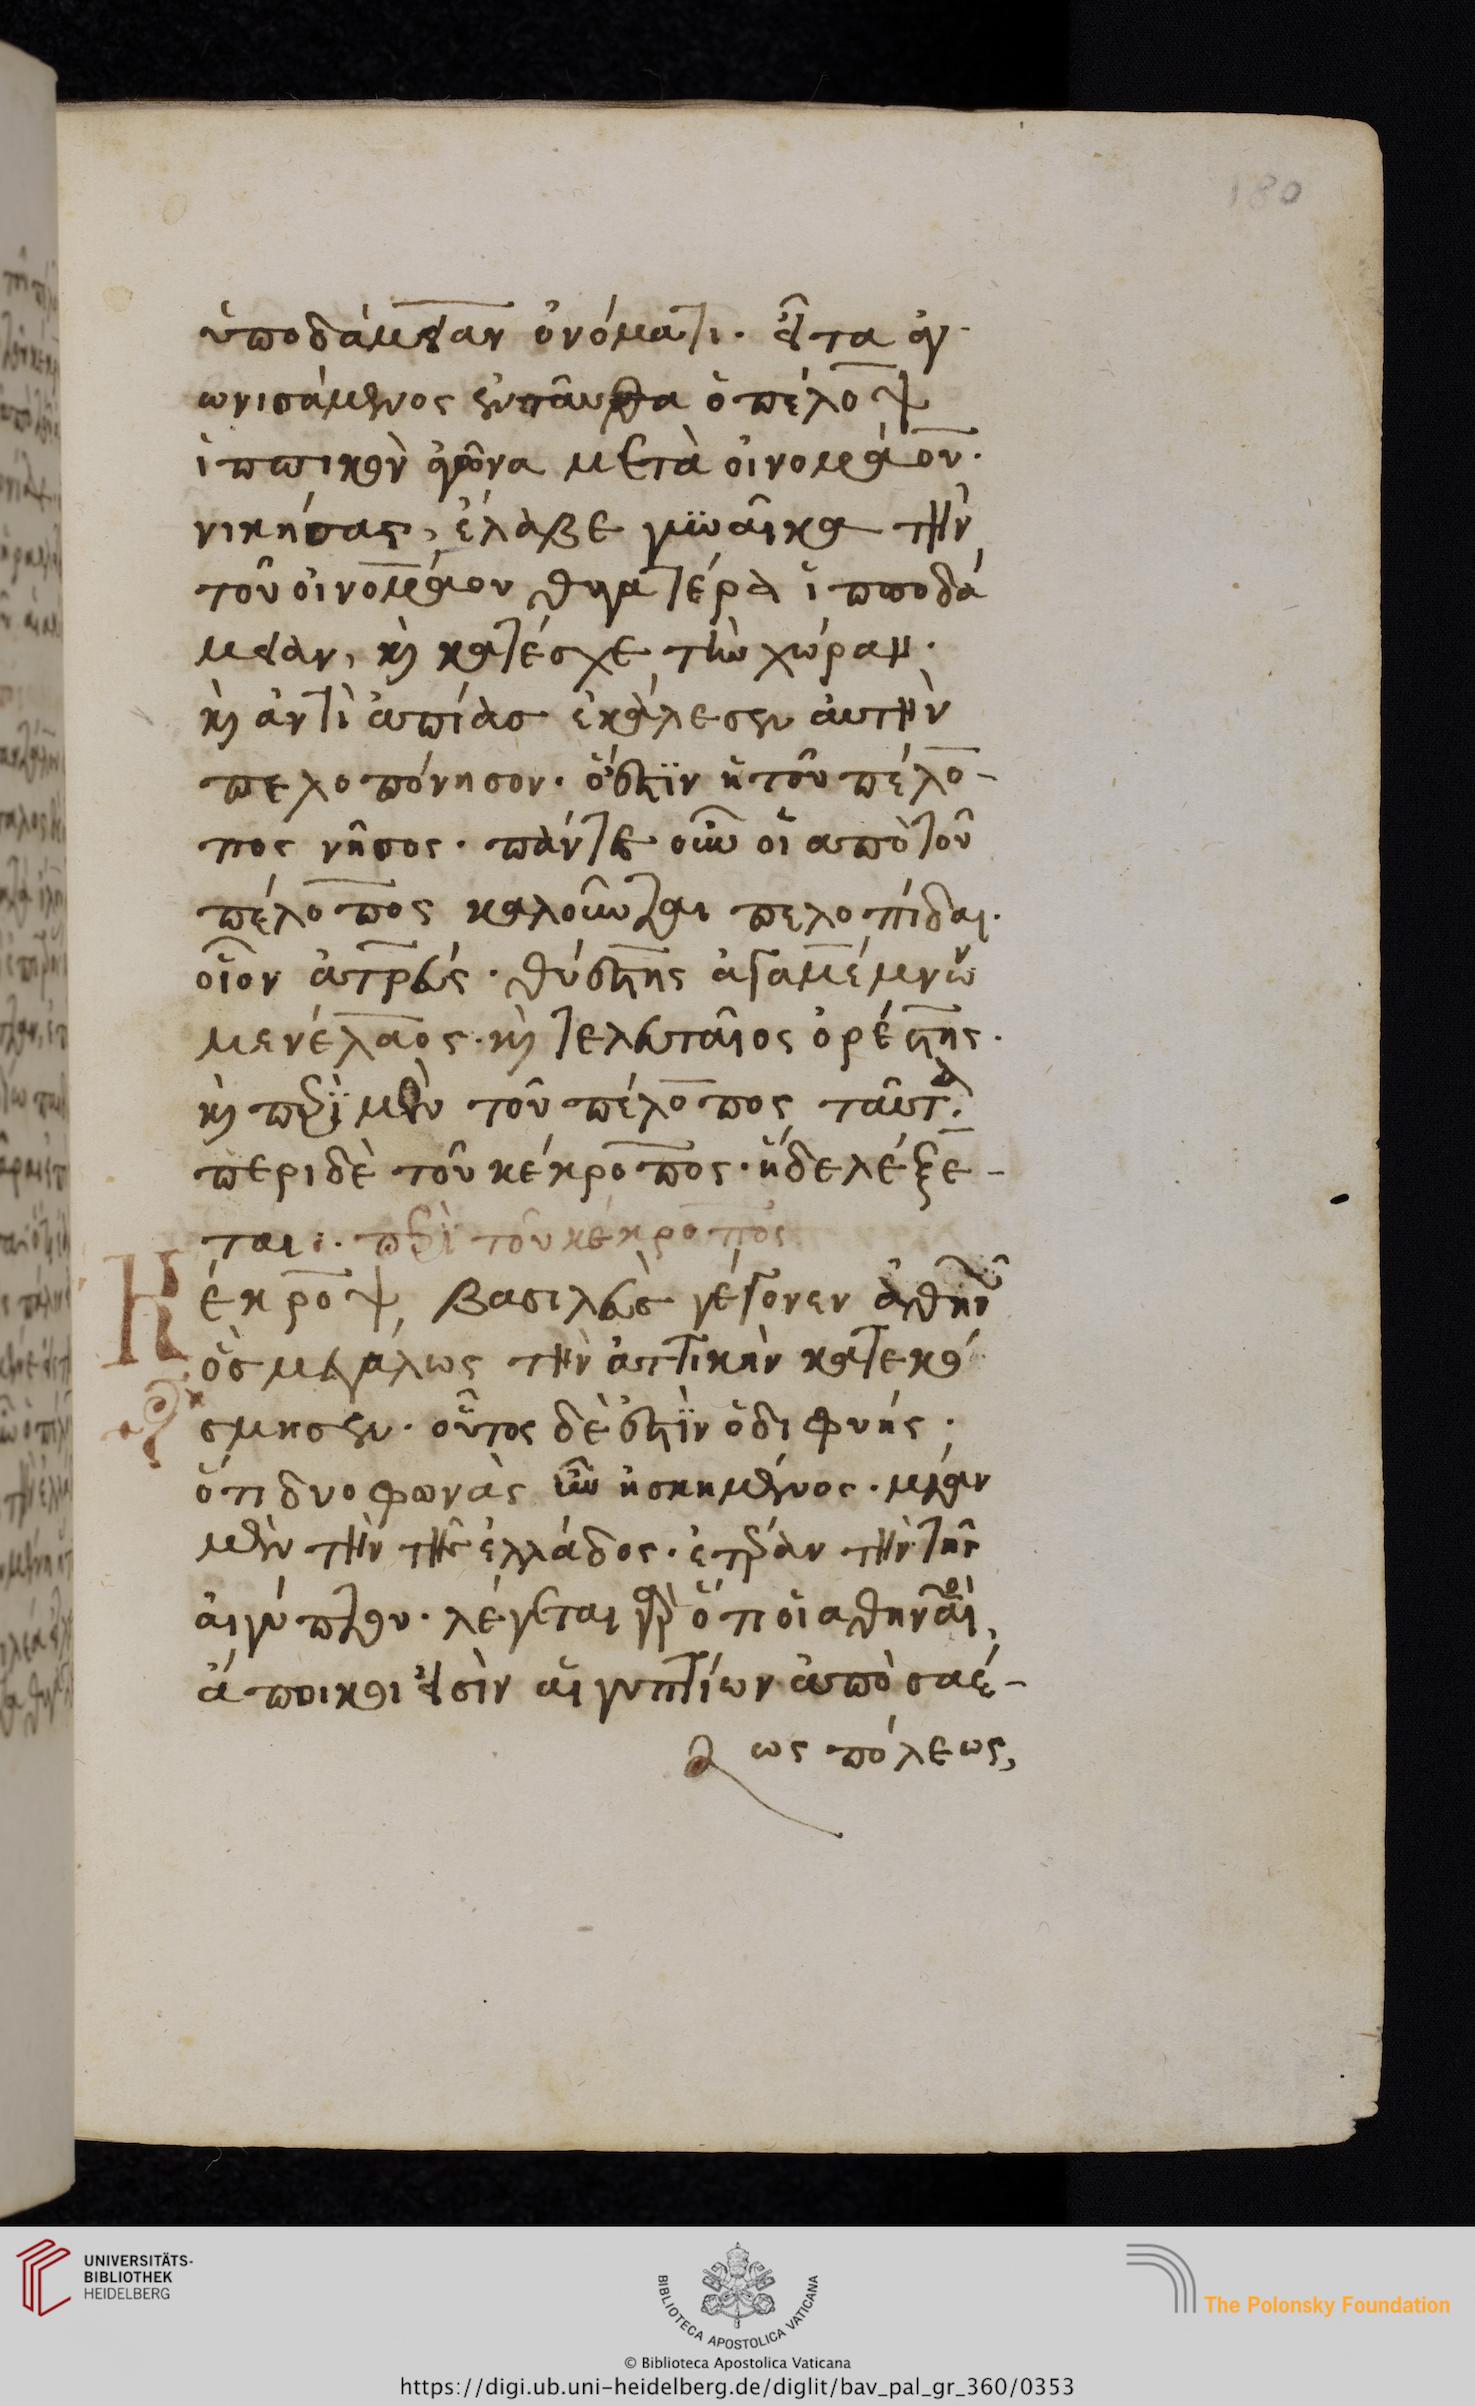 180
ὑποδάμειαν ὀνόματι. εἶτα ἀγ
ωνισάμενος ἐνταῦθα ὁ πέλοψ
ἱππικὸν ἀγῶνα μετὰ οἰνομάου.
νικήσας, ἔλαβε γυναῖκα τὴν
τοῦ οἰνομάου θυγατέρα ἱπποδά
μειαν, κὴ κατέσχε τὴν χώραν.
κὴ ἀντὶ ἀπίας ἐκάλεσεν αὐτὴν
πελοπόνησον. ὅ ἐστιν ἡ τοῦ πέλο-
πος νῆσος. πάντες οὖν οἱ ἀπὸ τοῦ
πέλοπος καλοῦνται πελοπίδαι.
οἷον ἀτρεύς. θύστης ἀγαμέμνων
μενέλαος. κὴ τελευταῖος ὀρέστης.
κὴ περὶ μὲν τοῦ πέλοπος ταῦτα.
περι δὲ τοῦ κέκροπος. ἤδε λέξε-
ται:. περὶ τοῦ κέκροπος
Κέκροψ, βασιλεὺς γέγονεν ἀθηνῶν
ὃς μεγάλως τὴν ἀττικὴν κατεκό
σμησεν. οὗτος δέ ἐστιν ὁ διφυής.
ὅτι δυο φωνὰς ἦν ἠσκημένος. μίαν
μὲν τὴν τῆς ἑλλάδος. ἑτέραν τὴν τῆς
αἰγύπτου. λέγεται γὰρ ὅτι οἱ ἀθηναῖοι,
ἄποικοι εἰσὶν αἰγυπτίων ἀπὸ σαέ-
ως πόλεως,
UNIVERSITÄTS-
BIBLIOTHEK
HEIDELBERG
BIBLIOTECA APOSTOLICA VATICANA
The Polonsky Foundation
© Biblioteca Apostolica Vaticana
https://digi.ub.uni-heidelberg.de/diglit/bav_pal_gr_360/0353